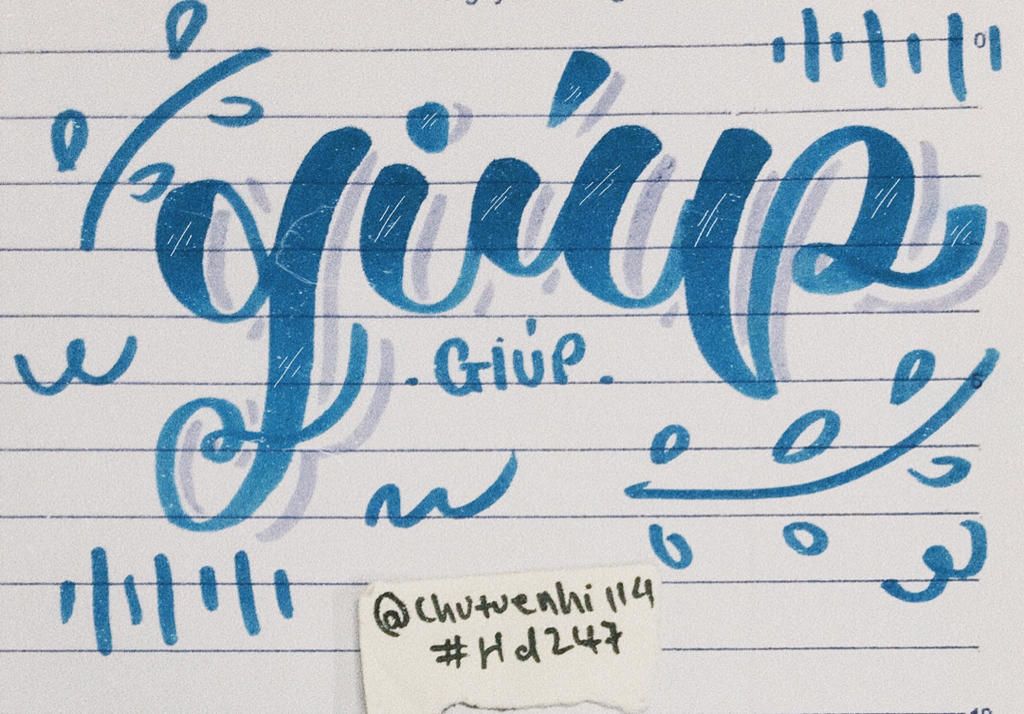 0
giúp
. GIÚP .
6
@chutuenhi 114
#Hd247